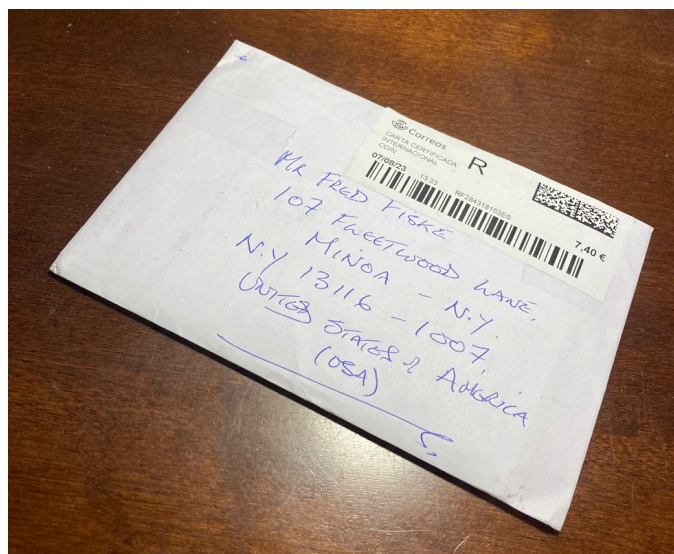 Correos
CARTA CERTIFICADA
INTERNACIONAL
COIN
R
07/08/23 13:33 RF284318163ES
7,40 €
MR FRED FISKE
107 FLEETWOOD LANE.
MINOA - N.Y.
N.Y 13116 - 1007,
UNITED STATES of AMERICA
(USA)